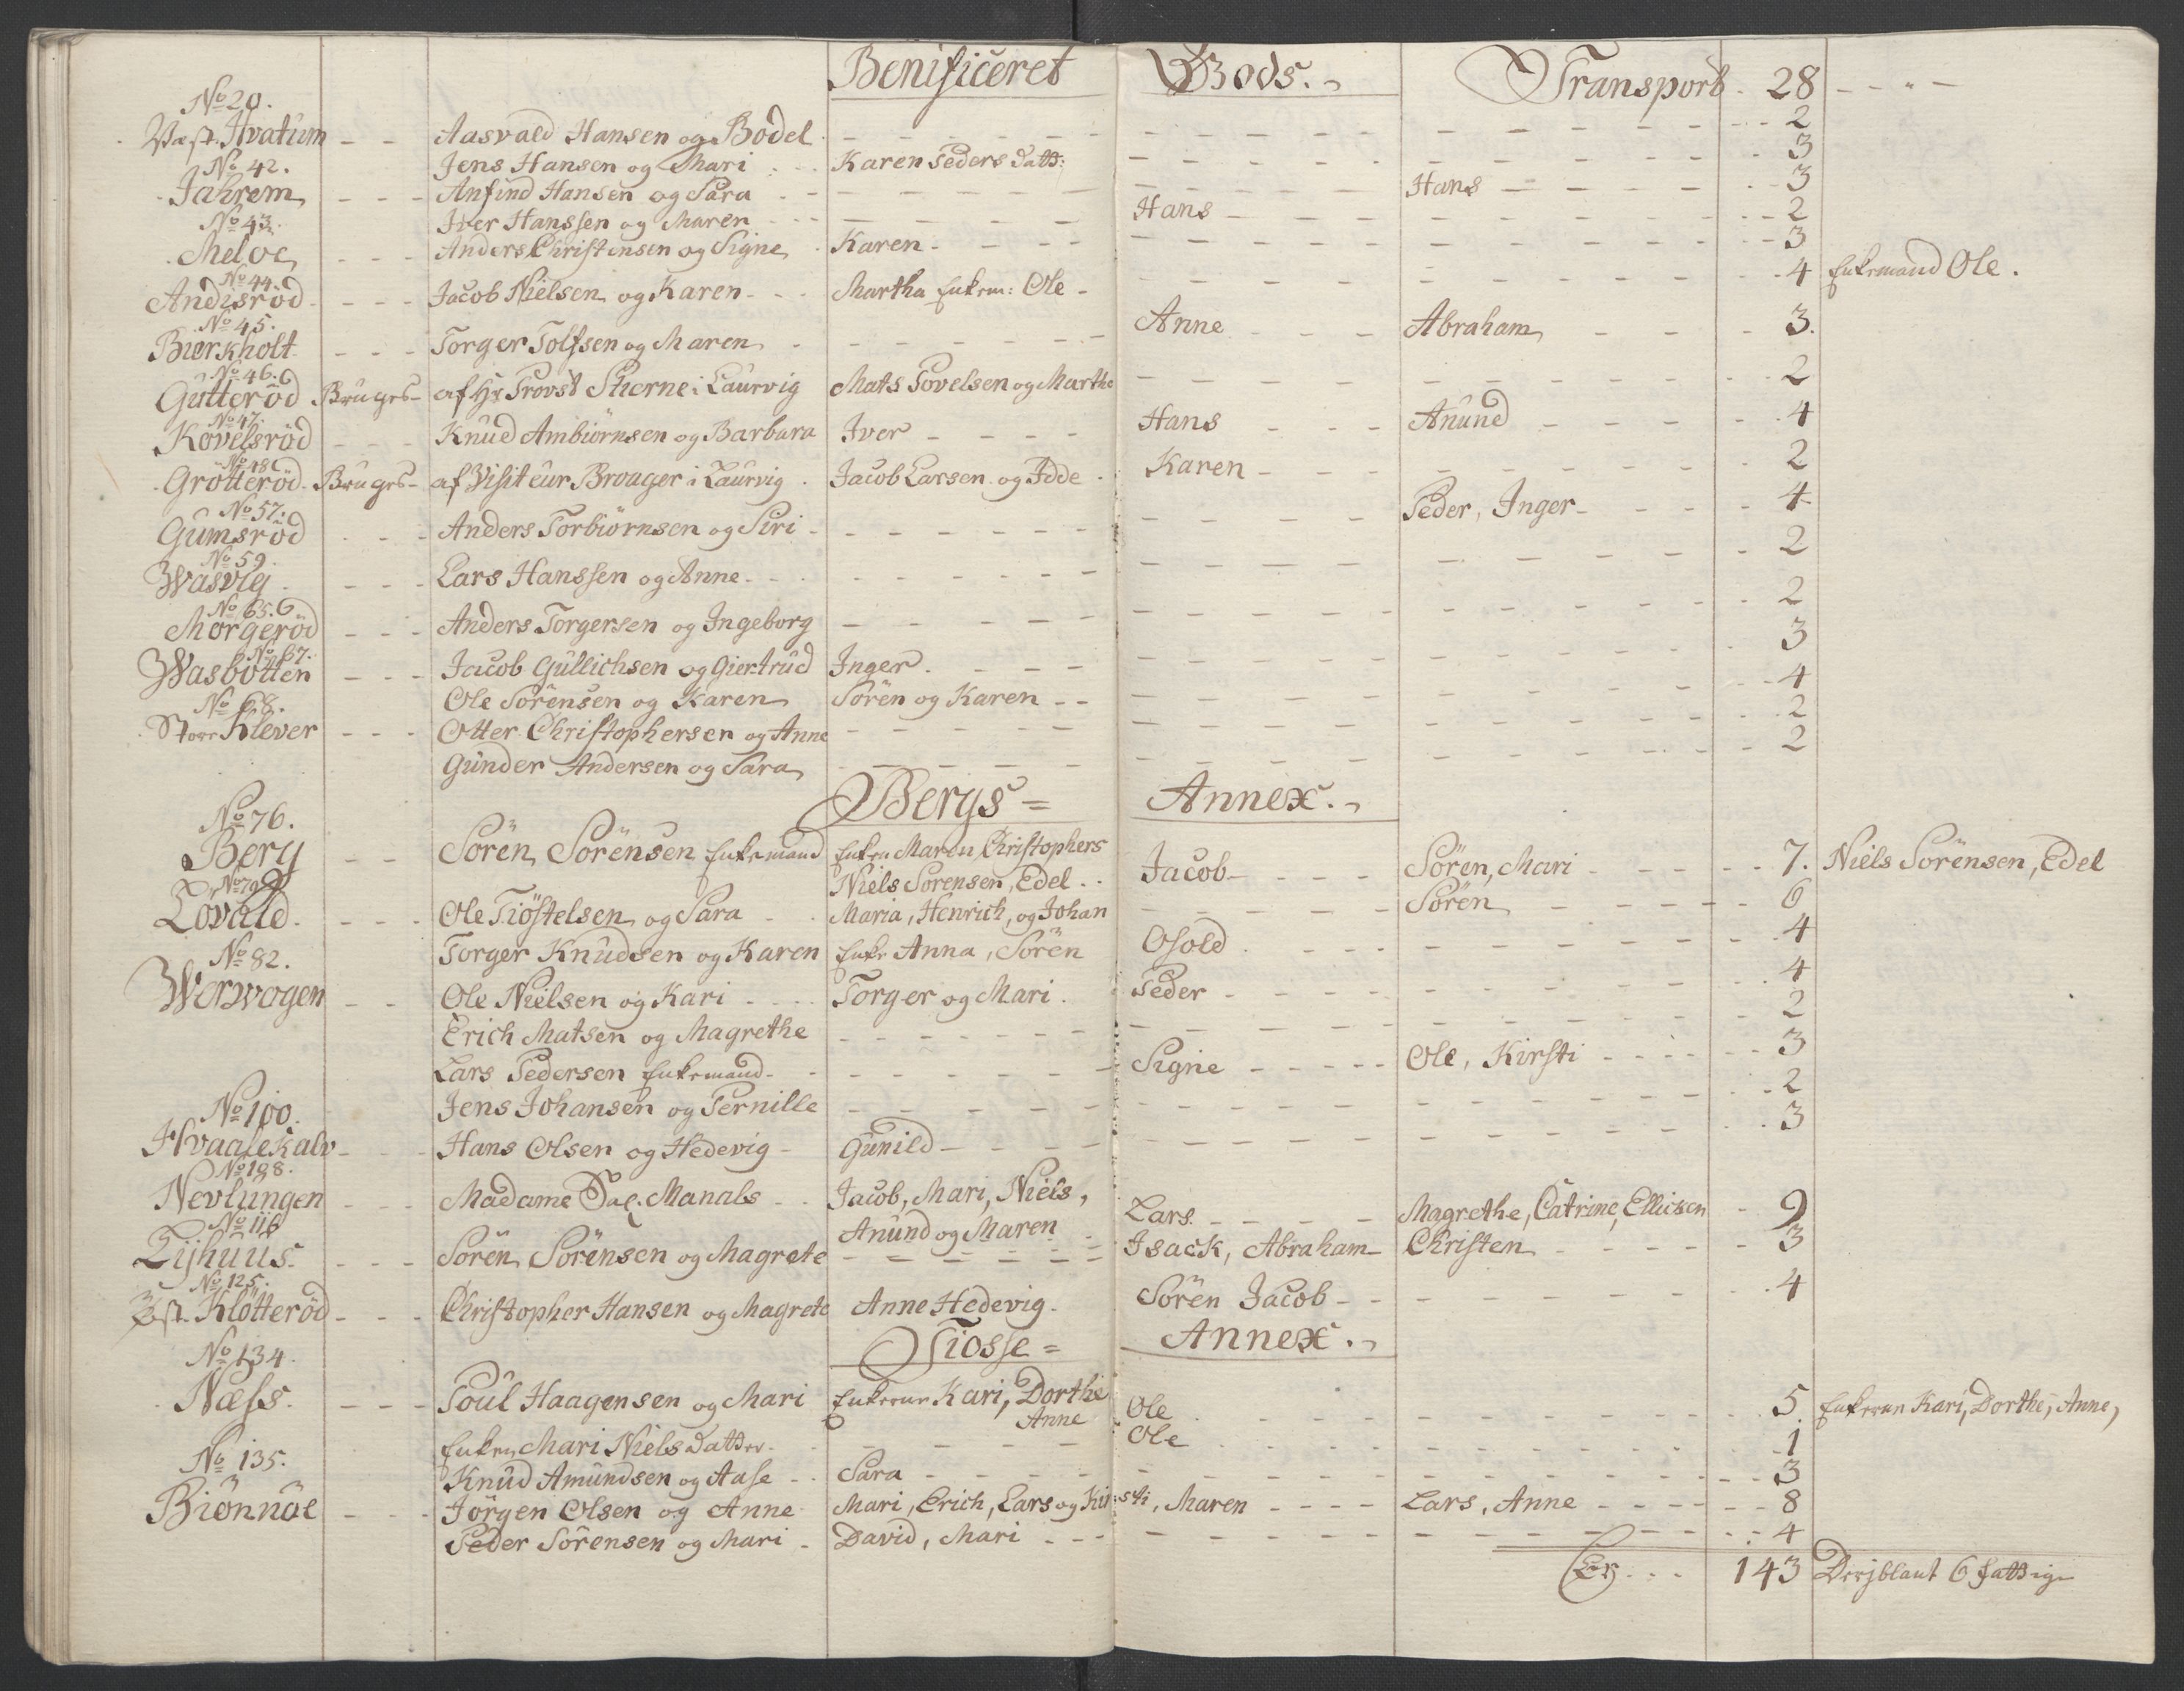 Benificeret Gods. Transport 28 - - " -
No 20.
Væst Hvatum - - Aasvald Hansen og Bodel - - - 2
No 42.
Jens Hansen og Mari - Karen Peders datt: - - - 3
Jahrem - - - Anfind Hansen og Sara - - - Hans - - - 3
No 43.
Iver Hanssen og Maren - - - Hans - - - 2
Meløe - - - Anders Christensen og Signe - Karen - - - 3
No 44.
Andisröd - - - Jacob Nielsen og Karen - - Martha Enkem: Ole - - - 4 Enkemand Ole.
No 45.
Bierkholt - - - Torger Tolfsen og Maren - - - Anne - - - Abraham - - - 3.
No 46.
Gutteröd Bruges - af Hr Provst Stierne i Laurvig Mats Povelsen og Marthe - - - 2
No 47.
Kovelsröd - - - Knud Ambiörnsen og Barbara Iver - - - Hans - - - Anund - - - 4
No 48
Grötteröd - Bruges - af Visiteur Broager i Laurvig. Jacob Larsen og Idde. Karen - - - 2
No 57.
Gumsröd - - - Anders Torbiörnsen og Siri - - - Peder, Inger - - - 4
No 59.
Wasvig - - - Lars Hanssen og Anne - - - 2
No 65.
Morgeröd - - - Anders Torgersen og Ingeborg - - - 2
No 67.
Wasbotten - - - Jacob Gullichsen og Giertrud Inger. - - - 3
No 68.
Ole Sörensen og Karen Sören og Karen - - - 4
Store Klever - - - Otter Christophersen og Anne - - - 2
Gunder Andersen og Sara - - - 2
Bergs = Annex.
No 76.
Berg - - Sören Sörensen Enkemand Enken Maren Christophers Jacob - - - Sören, Mari - - - 7. Niels Sörensen, Edel
Niels Sorensen, Edel . .
No 79
Lovald - - - Ole Tiöstelsen og Sara - - Maria, Henrich, og Johan - - - Sören - - - 6
Torger Knudsen og Karen Enke Anna, Sören Osold - - - 4
No 82.
Worwogen - - Ole Nielsen og Kari - - - Torger og Mari. Peder - - - 4
Erich Matsen og Magrethe - - - 2
Lars Pedersen Enkemand - - - Signe - - - Ole, Kirsti - - - 3
No 100.
Jens Johansen og Pernille - - - 2
Hvaalekalv - - - Hans Olsen og Hedevig - Gunild - - - 3
No 108.
Nevlungen - - - Madame Sal. Manals - - Jacob, Mari, Niels, Lars. - - - Magrethe, Catrine, Ellicsen - 9
Anund og Maren Isack, Abraham - Christen - - - 3
No 116
Lijhuus - - - Sören Sörensen og Magrete - - -
No 125.
Øst. Klötteröd - - - Christopher Hansen og Magrete Anne Hedevig - Sören Jacob - - - 4
Tiosse = Annex.
No 134.
Næss. - - - Poul Haagensen og Mari Enkerne Kari, Dorthe Ole - - - 5 Enkerne Kari, Dorthe, Anne,
Anne
Enken Mari Niels datter - - - Ole - - - 1
No 135.
Knud Amundsen og Aase - - Sara - - - 3
Biönnöe - - - Jörgen Olsen og Anne Mari, Erich, Lars og Kirsti, Maren - - - Lars, Anne - - - 8
Peder Sörensen og Mari - David, Mari - - - 4
Er . . . 143 Deriblant 6 fattige